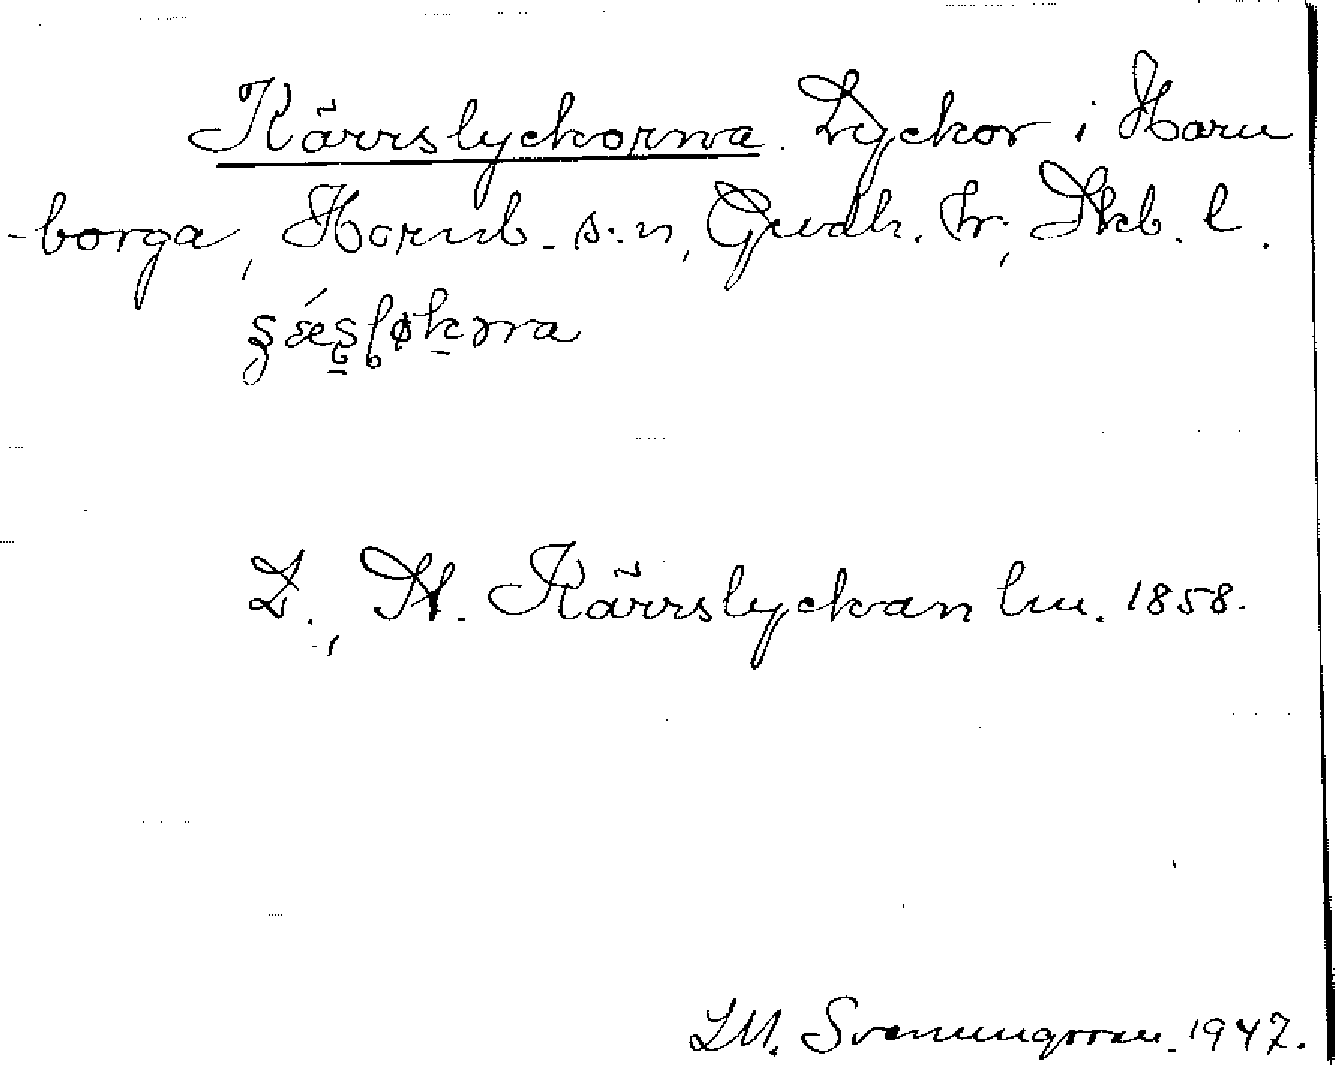 Kärrslyckorna. Lyckor i Horn
-borga, Hornb. s:n, Gudh. hr, Skb. l.
L., St. Kärrslyckan lm. 1858.
L.M. Svenungsson. 1947.